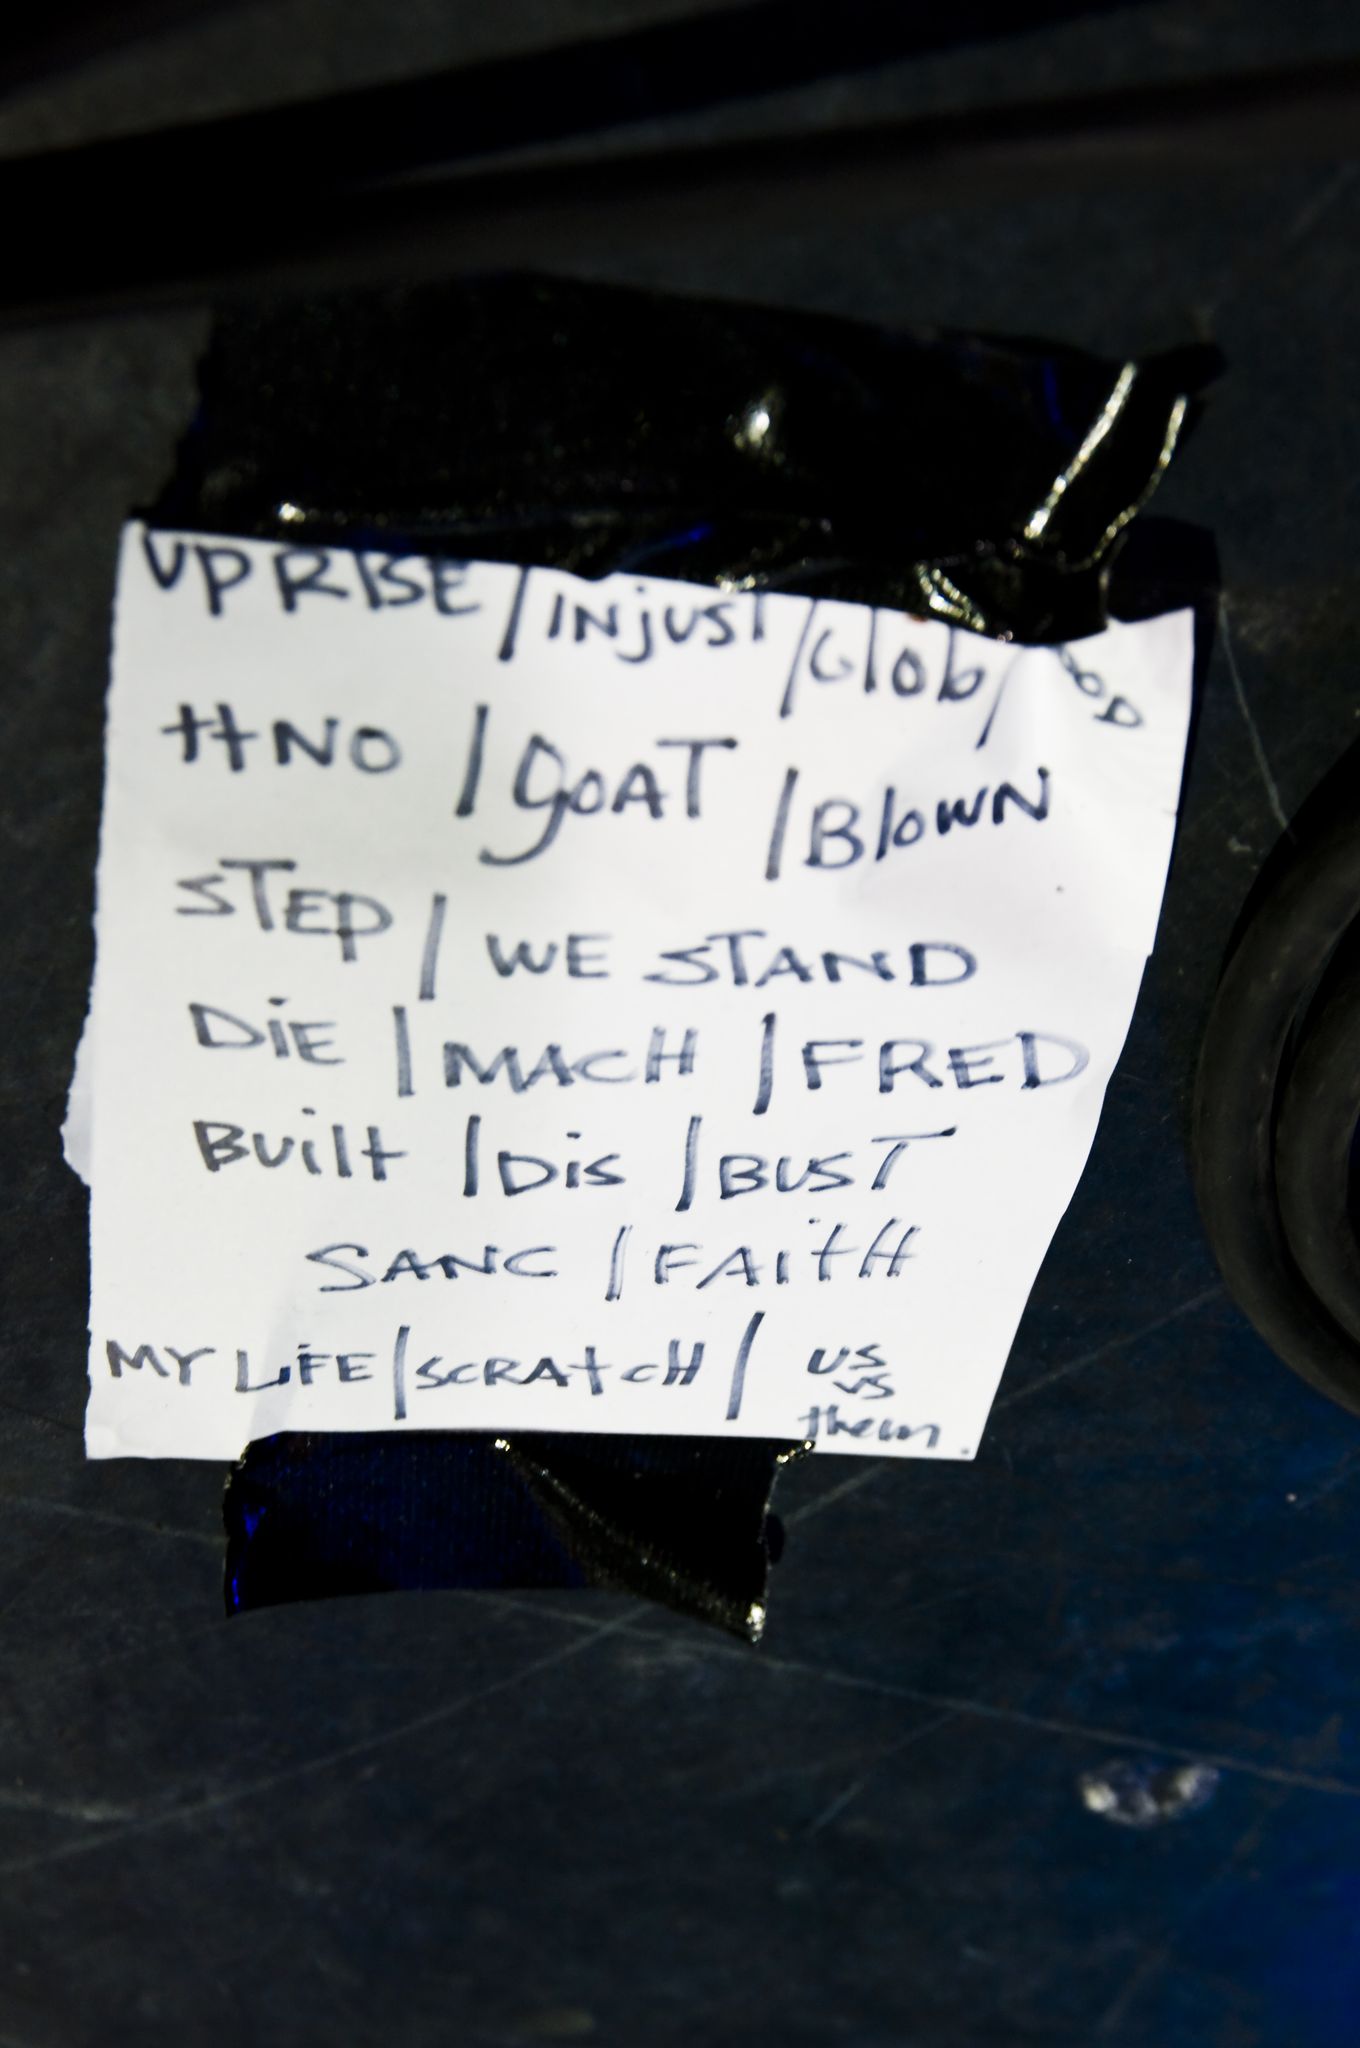 UPRISE / INJUST / Glob /
HNO / GOAT / BLOWN
STEP / WE STAND
DIE / MACH / FRED
BUILT / DIS / BUST
SANC / FAITH
MY LIFE / SCRATCH / US
VS
them.